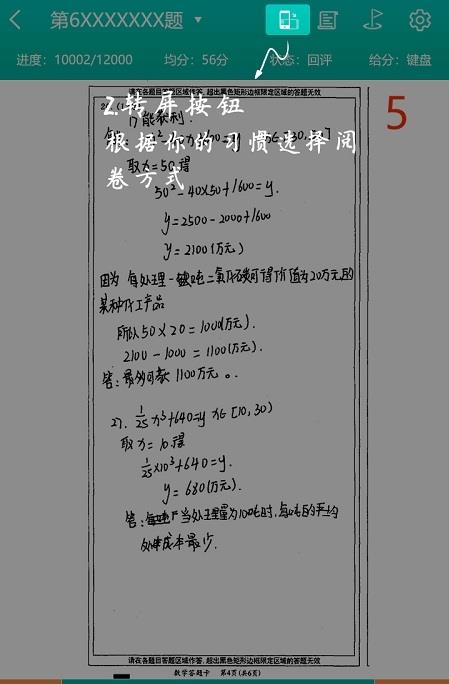 第6XXXXXXX题
进度：10002/12000 均分：56分 状态：回评 给分：键盘
请在各题目答题区域作答，超出黑色矩形边框限定区域的答题无效
5
2.转屏按钮
根据你的习惯选择阅
卷方式
1) 能获利.
取x=50得
50²-40×50+1600=y.
y=2500-2000+1600
y=2100(万元)
因为 每处理一吨二氧化碳可得价值为20万元的
某种化工产品
所以 50×20=1000(万元).
2100-1000=1100(万元).
答：最多可获1100万元。
2). 1/25 x³+640=y x∈[10,30)
取x=10得
1/25×10³+640=y.
y=680(万元).
答：当处理量为10吨时，每吨的平均
处理成本最少.
请在各题目答题区域作答，超出黑色矩形边框限定区域的答题无效
数学答题卡 第4页(共6页)